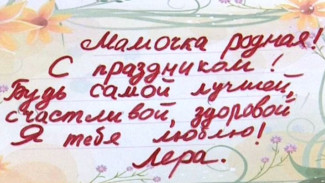 Мамочка родная!
С праздником!
Будь самой лучшей,
счастливой, здоровой
Я тебя люблю!
Лера.